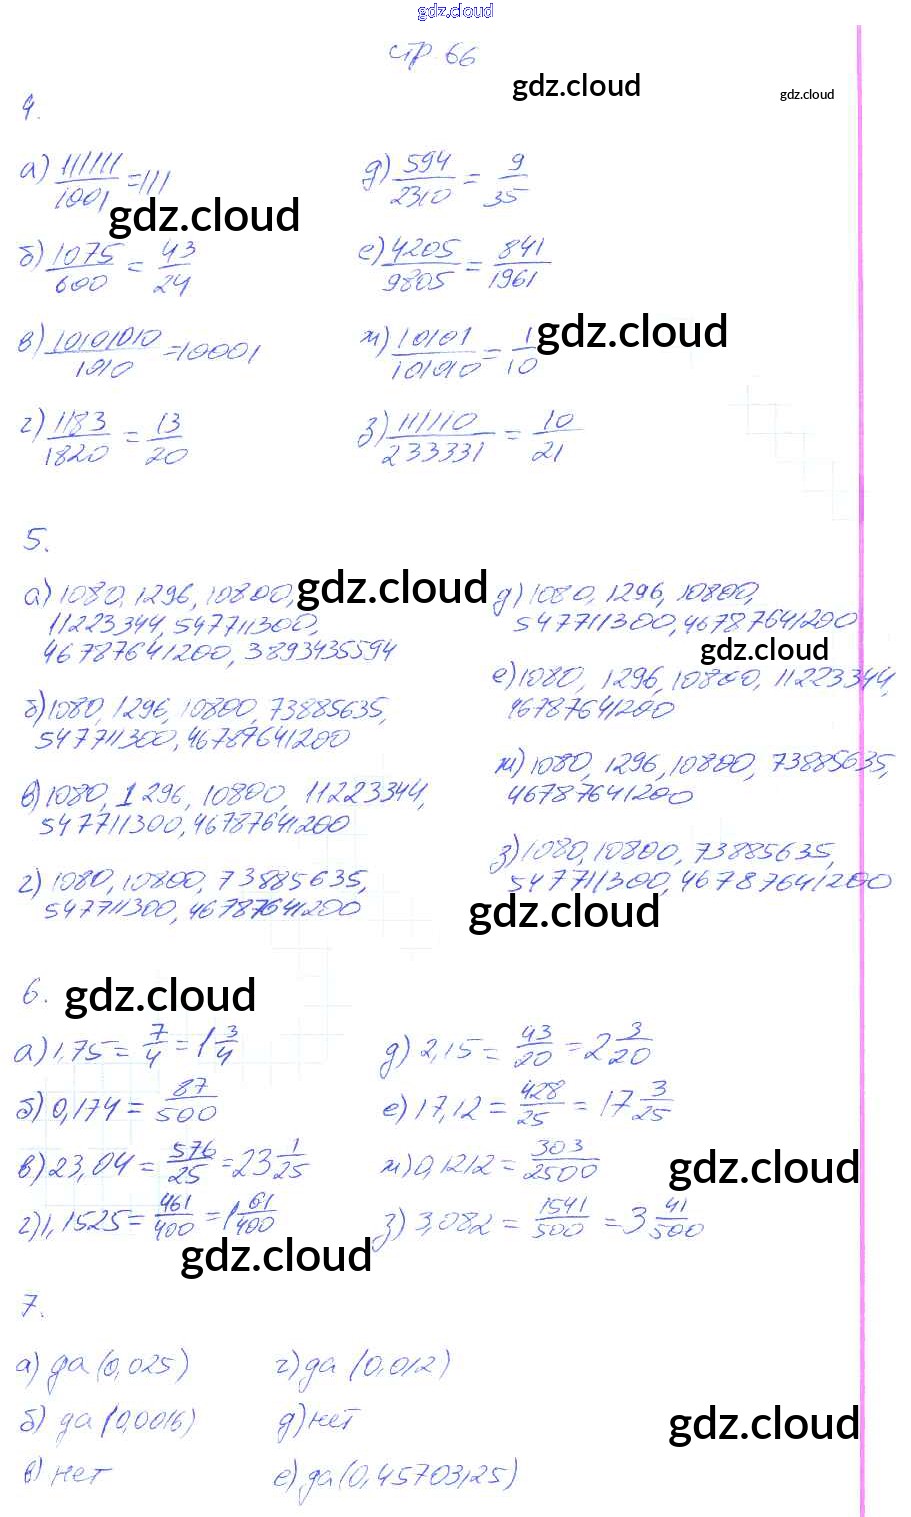 gdz.cloud
стр 66
gdz.cloud
gdz.cloud
4.
а) 111111/1001 = 111
д) 594/2310 = 9/35
gdz.cloud
б) 1075/600 = 43/24
е) 4205/9805 = 841/1961
в) 10101010/1010 = 10001
ж) 10101/101010 = 1/10
gdz.cloud
г) 1183/1820 = 13/20
з) 111110/233331 = 10/21
5.
а) 1080, 1296, 10800,
11223344, 547711300,
46787641200, 3893435594
gdz.cloud
д) 1080, 1296, 10800,
547711300, 46787641200
gdz.cloud
б) 1080, 1296, 10800, 73885635,
547711300, 46787641200
е) 1080, 1296, 10800, 11223344,
46787641200
в) 1080, 1296, 10800, 11223344,
547711300, 46787641200
ж) 1080, 1296, 10800, 73885635,
46787641200
г) 1080, 10800, 73885635,
547711300, 46787641200
з) 1080, 10800, 73885635,
547711300, 46787641200
gdz.cloud
6.
gdz.cloud
а) 1,75 = 7/4 = 1 3/4
д) 2,15 = 43/20 = 2 3/20
б) 0,174 = 87/500
е) 17,12 = 428/25 = 17 3/25
в) 23,04 = 576/25 = 23 1/25
ж) 0,1212 = 303/2500
gdz.cloud
г) 1,1525 = 461/400 = 1 61/400
з) 3,082 = 1541/500 = 3 41/500
gdz.cloud
7.
а) да (0,025)
г) да (0,012)
б) да (0,0016)
д) нет
gdz.cloud
в) нет
е) да (0,45703125)